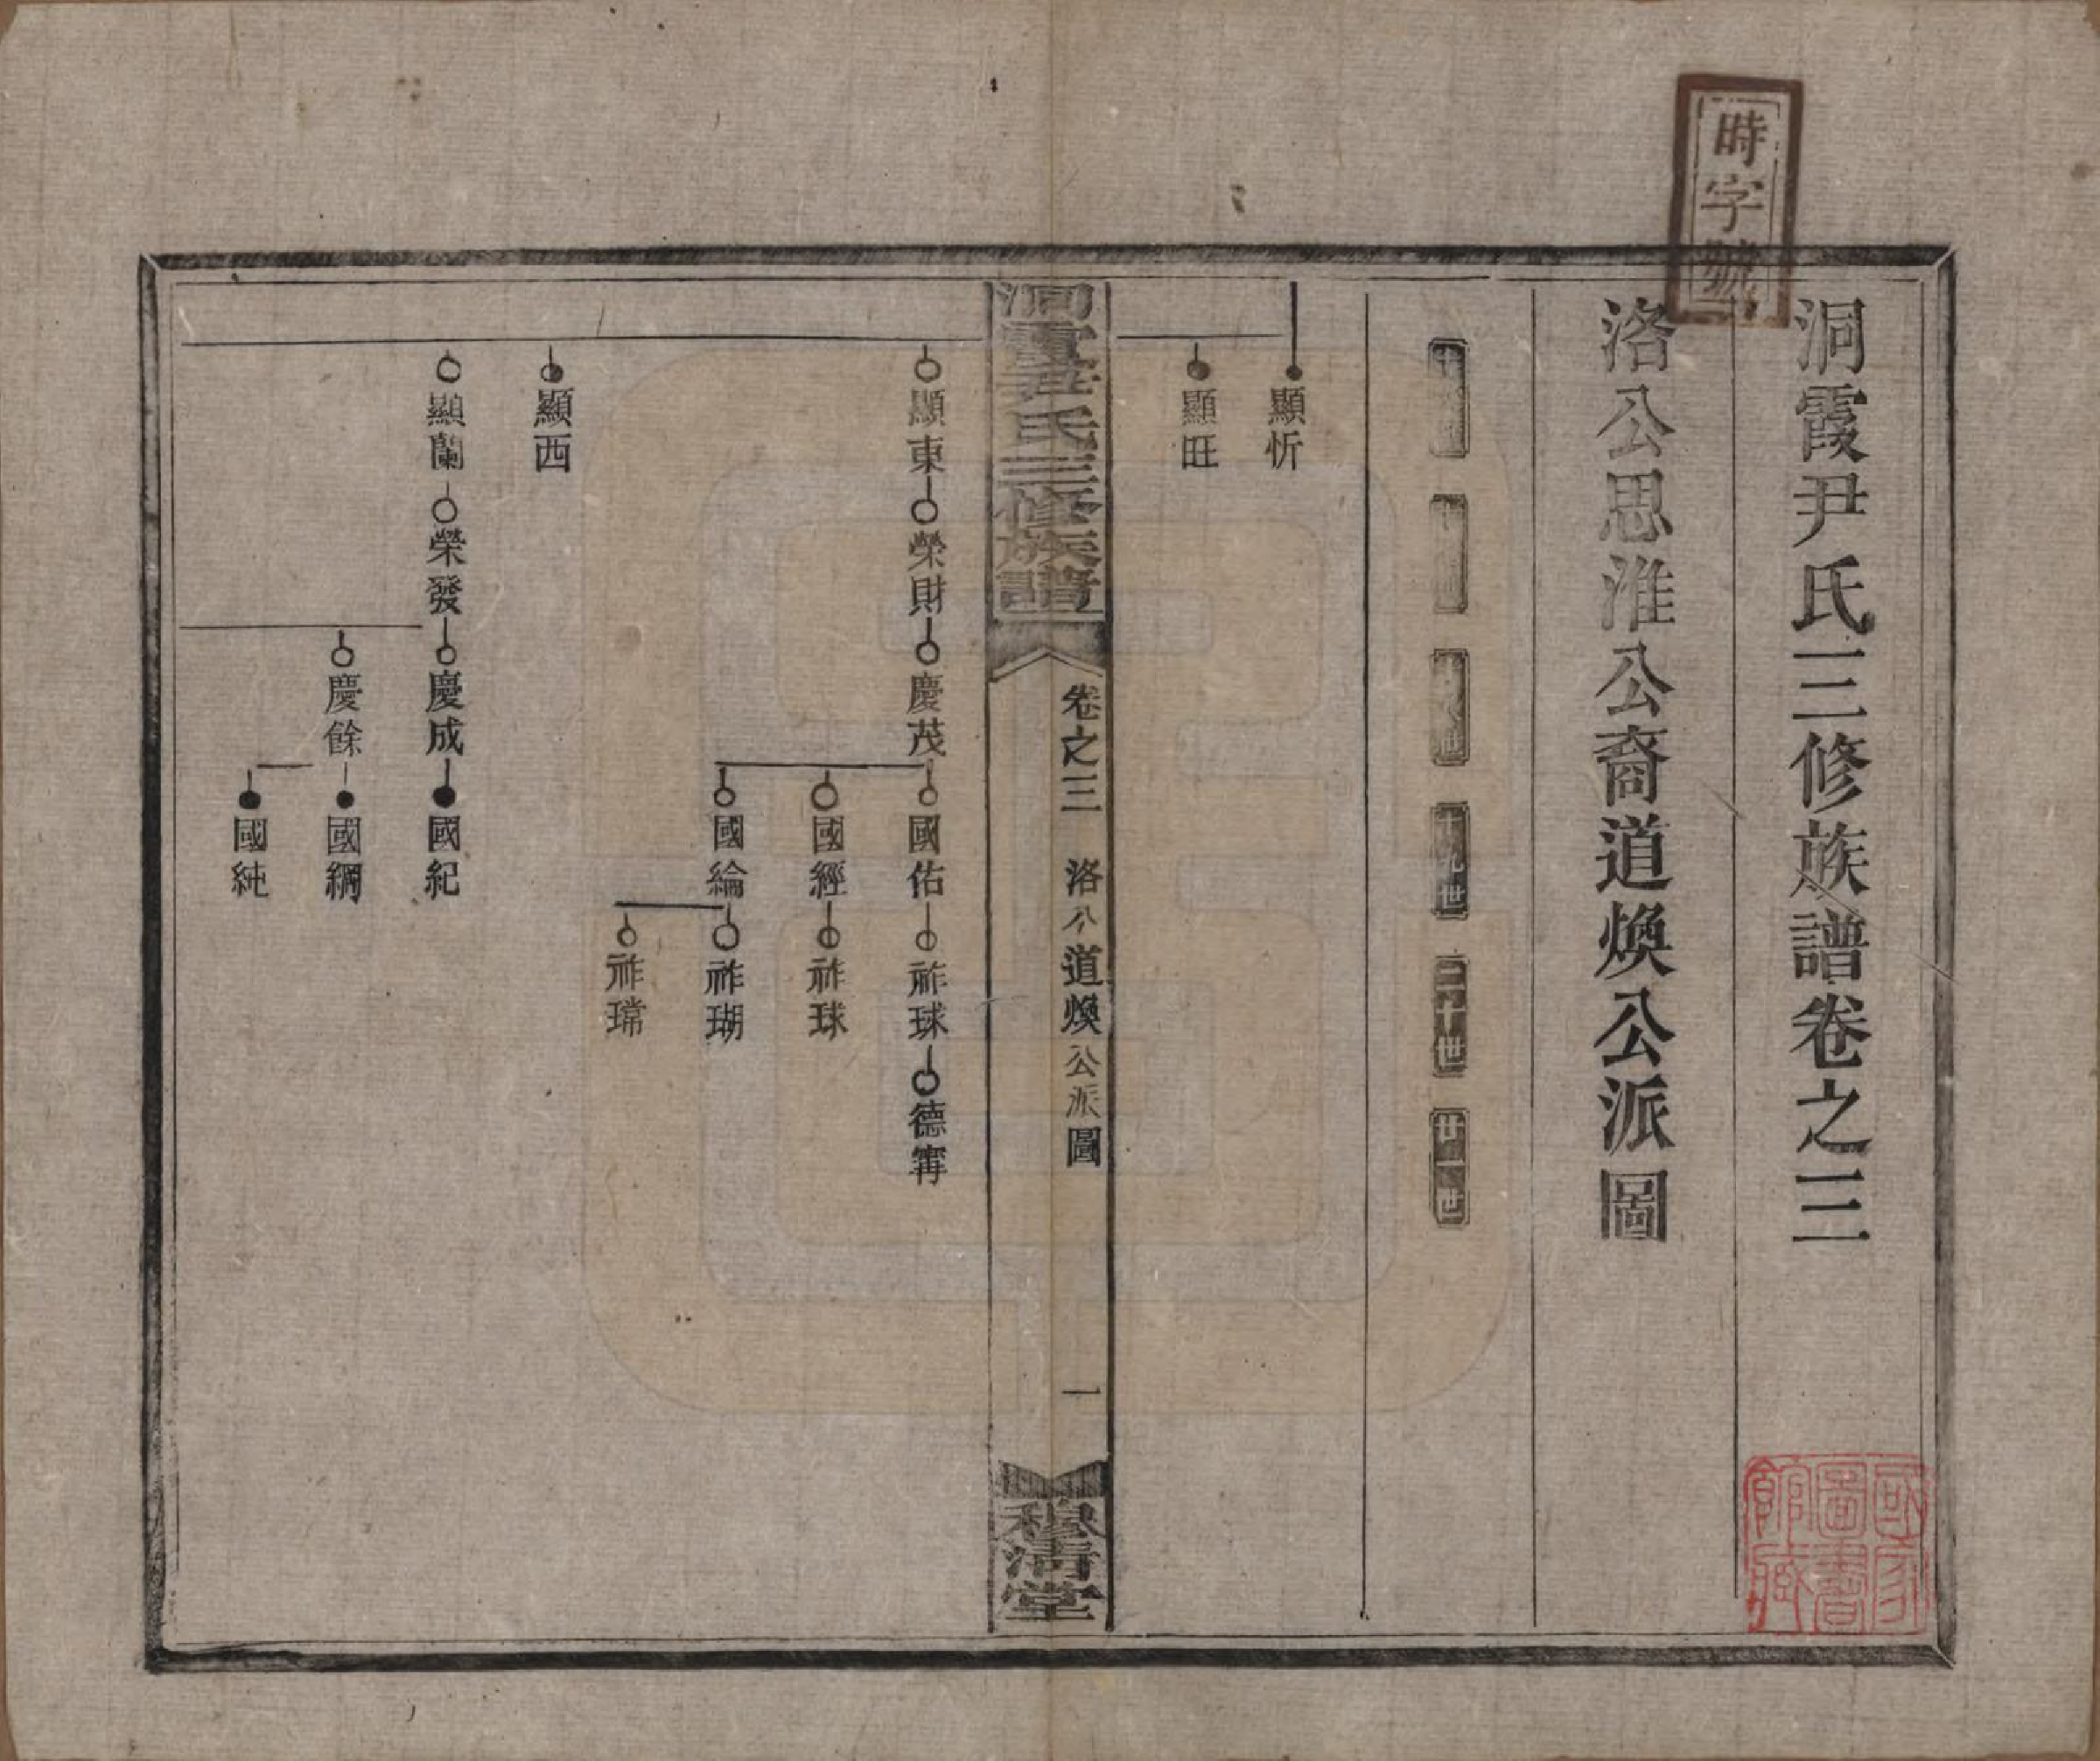 時字號
洞霞尹氏三修族譜卷之三
洛公思淮公裔道煥公派圖
十九世
二十世
廿一世
顯忻
顯旺
洞霞尹氏三修族譜
卷之三 洛公道煥公派圖
一
穆清堂
顯東 榮財 慶茂 國佑 祚球 德甯
國經 祚球
國綸 祚瑚
祚璫
顯西
顯蘭 榮發 慶成 國紀
慶餘 國綱
國純
國家圖書館藏